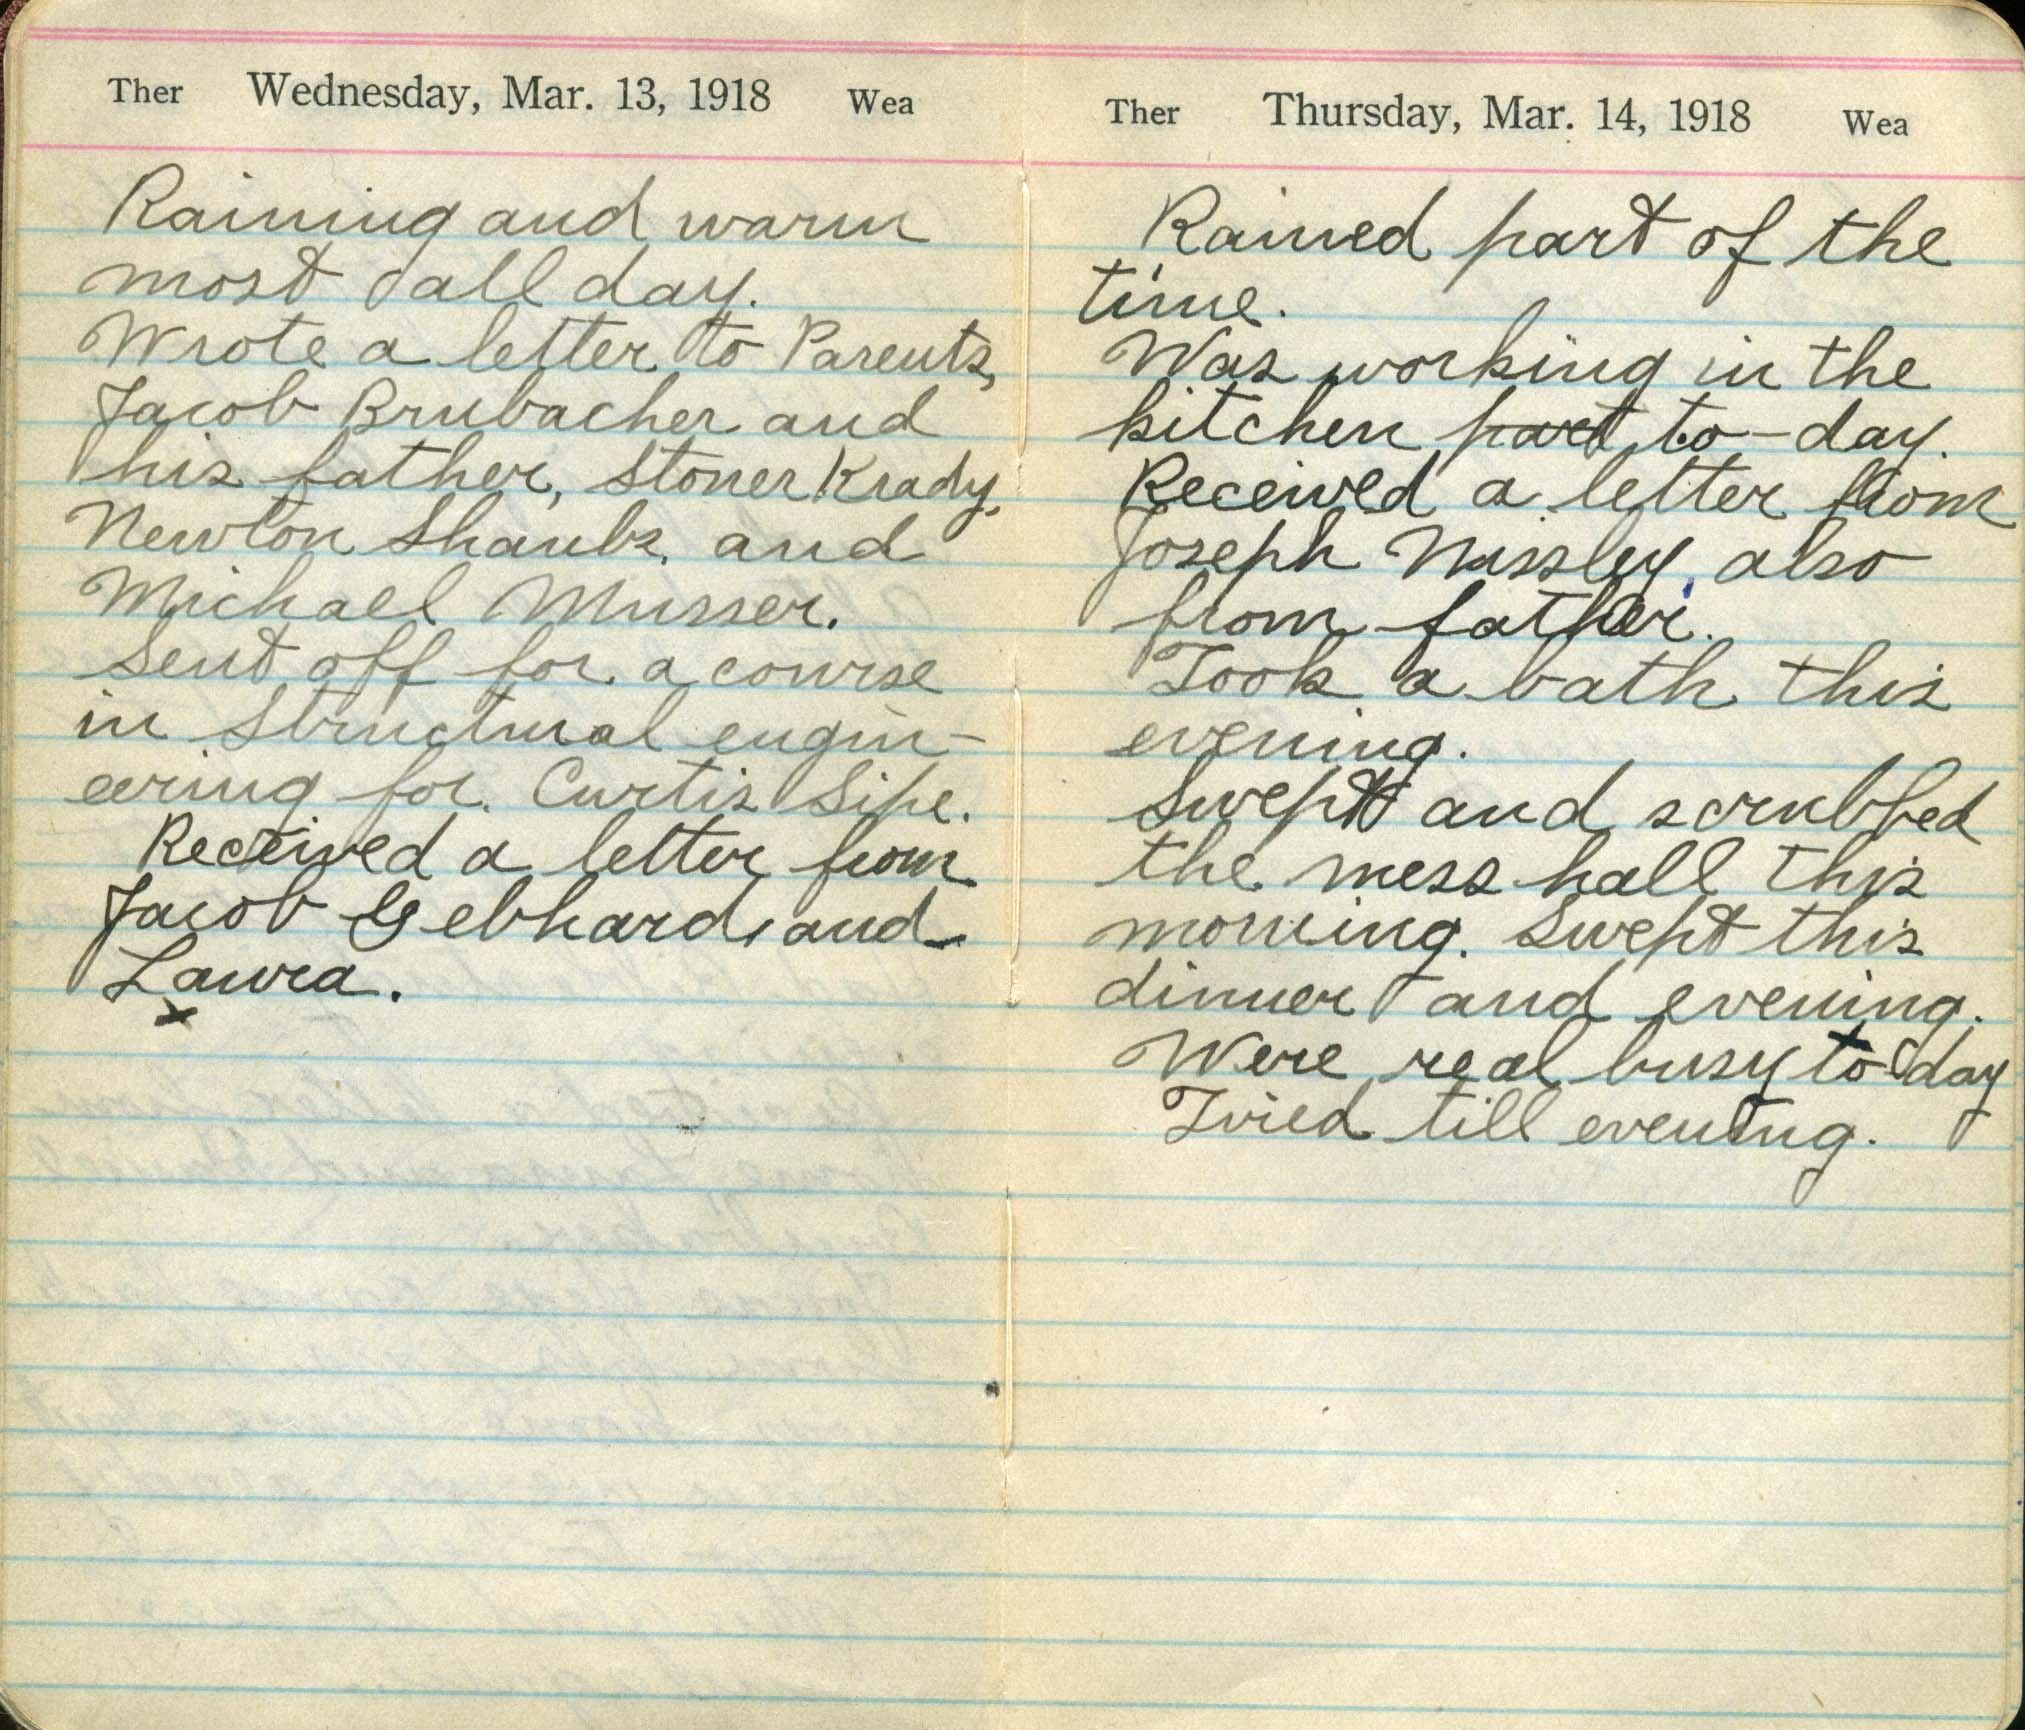 Ther Wednesday, Mar. 13, 1918 Wea
Raining and warm
most all day.
Wrote a letter to Parents,
Jacob Brubacher and
his father, Stoner Krady,
Newton Shaubs, and
Michael Musser.
Sent off for a course
in Structural engin-
eering for Curtis Sipe.
Received a letter from
Jacob Gebhard, and
Laura.
x
Ther Thursday, Mar. 14, 1918 Wea
Rained part of the
time.
Was working in the
kitchen part to-day.
Received a letter from
Joseph Nissley, also
from father.
Took a bath this
evening.
Swept and scrubbed
the mess hall this
morning. Swept this
dinner and evening.
Were real busy to-day
Tried till evening.